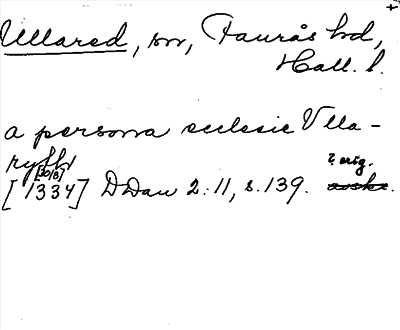 +
Ullared, sn, Faurås hd,
Hall. l.
a persona ecclesie Vlla-
rydh
[30/8] ? orig.
[1334] DDan 2:11, s. 139. avskr.